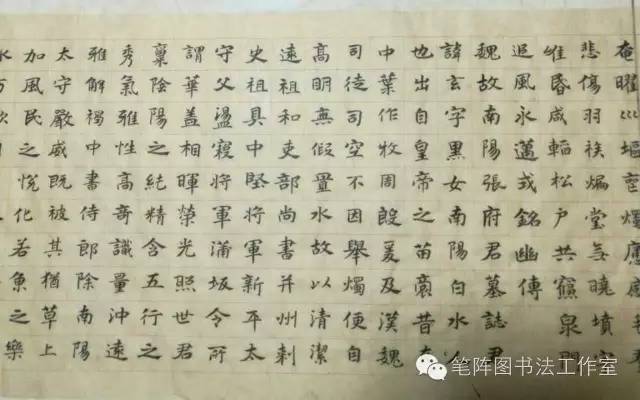 奄曜巛堰
悲傷羽核煸堂無曉墳
唯昏咸輻松戶共窺泉門
追風永邁式銘幽傳
魏故南陽張府君墓誌君
諱玄字黑女南陽白水人
也出自皇帝之苗裔昔在
中葉作牧周殷爰及漢魏
司徒司空不因舉燭便自
高明無假置水故以清潔
遠祖和吏部尚書并州刺
史祖具中堅將軍新平太
守父盪寇將軍蒲坂令所
謂華盖相暉榮光照世君
稟陰陽之純精含五行之
秀氣雅性高奇識量沖遠
雅解褐中書侍郎除南陽
太守嚴威既被其猶草上
加風民之悅化若魚之樂
水方欣
笔阵图书法工作室